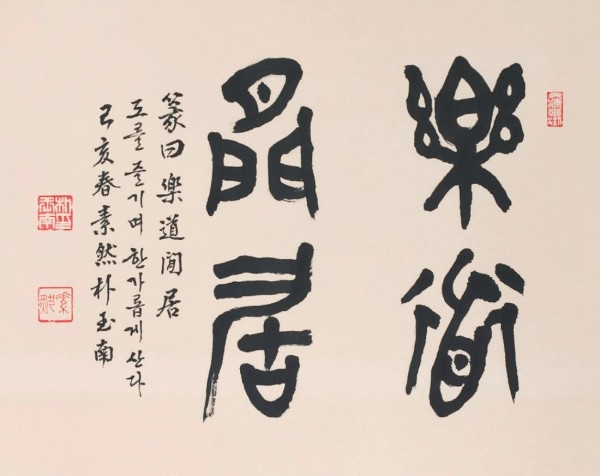 樂道
閒居
篆曰樂道閒居
도를 즐기며 한가롭게 산다
己亥春素然朴玉南